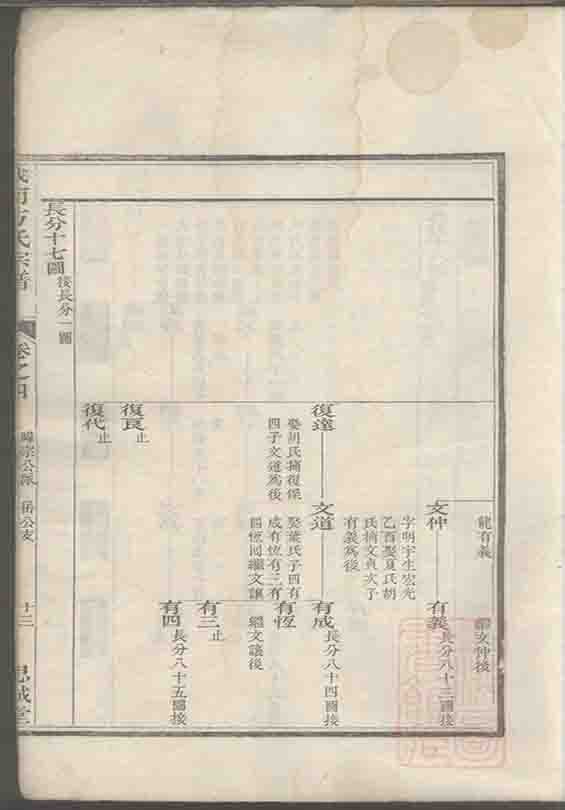 龍有義
繼文仲後
文仲
字明宇生宏光
乙酉娶夏氏胡
氏撫文貞次子
有義為後
有義
長分八十三圖接
復達
娶胡氏撫復保
四子文道為後
文道
娶葉氏子四有
成有恆有三有
四恆回繼文讓
有成
長分八十四圖接
有恆
繼文讓後
有三
止
有四
長分八十五圖接
復良
止
復代
止
長分十七圖
接長分一圖
方氏宗譜
卷之四
公派
岳公支
十二